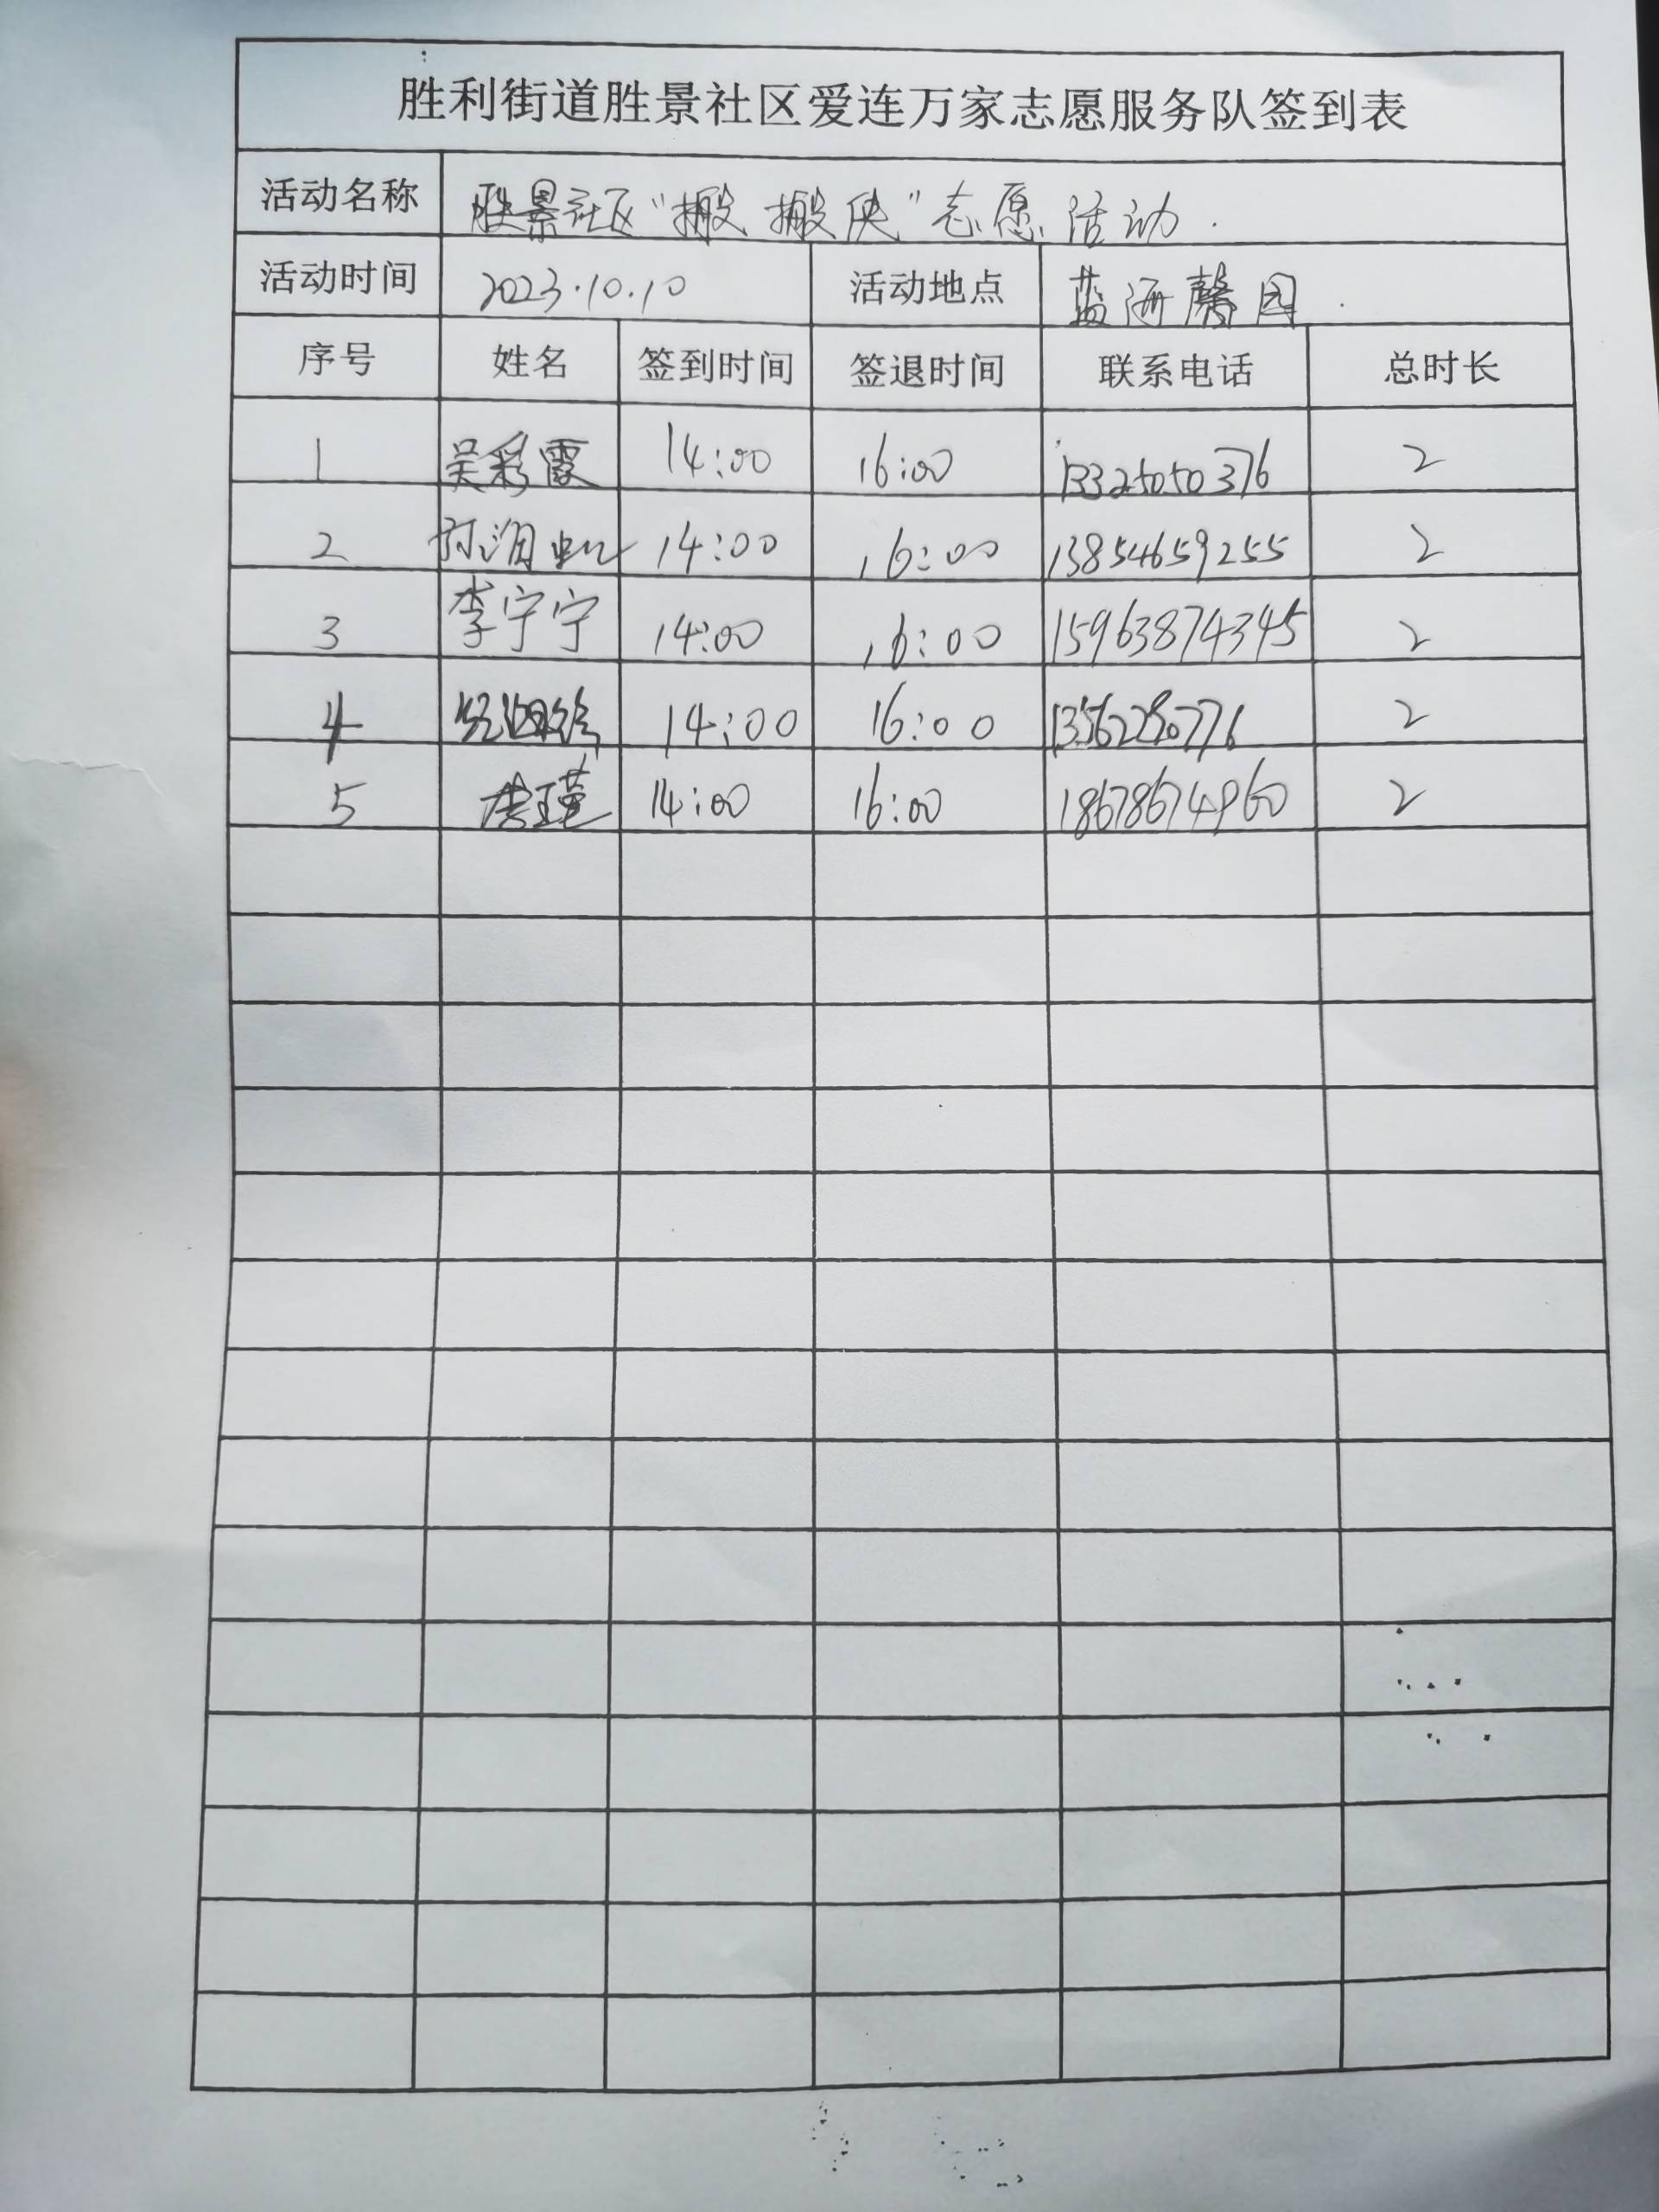 胜利街道胜景社区爱连万家志愿服务队签到表
活动名称 胜景社区“搬搬侠”志愿活动.
活动时间 2023.10.10 活动地点 蓝海馨园.
序号 姓名 签到时间 签退时间 联系电话 总时长
1 吴彩霞 14:00 16:00 13325050376 2
2 14:00 16:00 13854659255 2
3 李宁宁 14:00 16:00 15963874345 2
4 14:00 16:00 2
5 14:00 16:00 18678674960 2